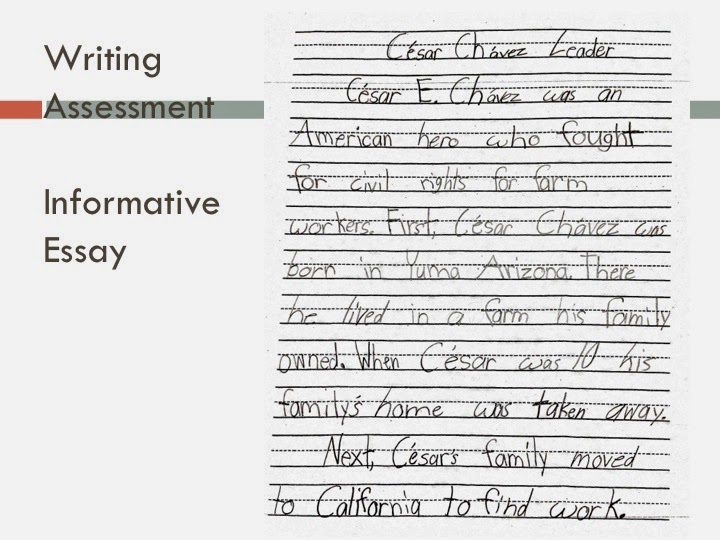 Writing
Assessment
Informative
Essay
César Chávez Leader
César E. Chávez was an
American hero who fought
for civil rights for farm
workers. First, César Chávez was
born in Yuma Arizona. There
he lived in a farm his family
owned. When César was 10 his
family's home was taken away.
Next, César's family moved
to California to find work.